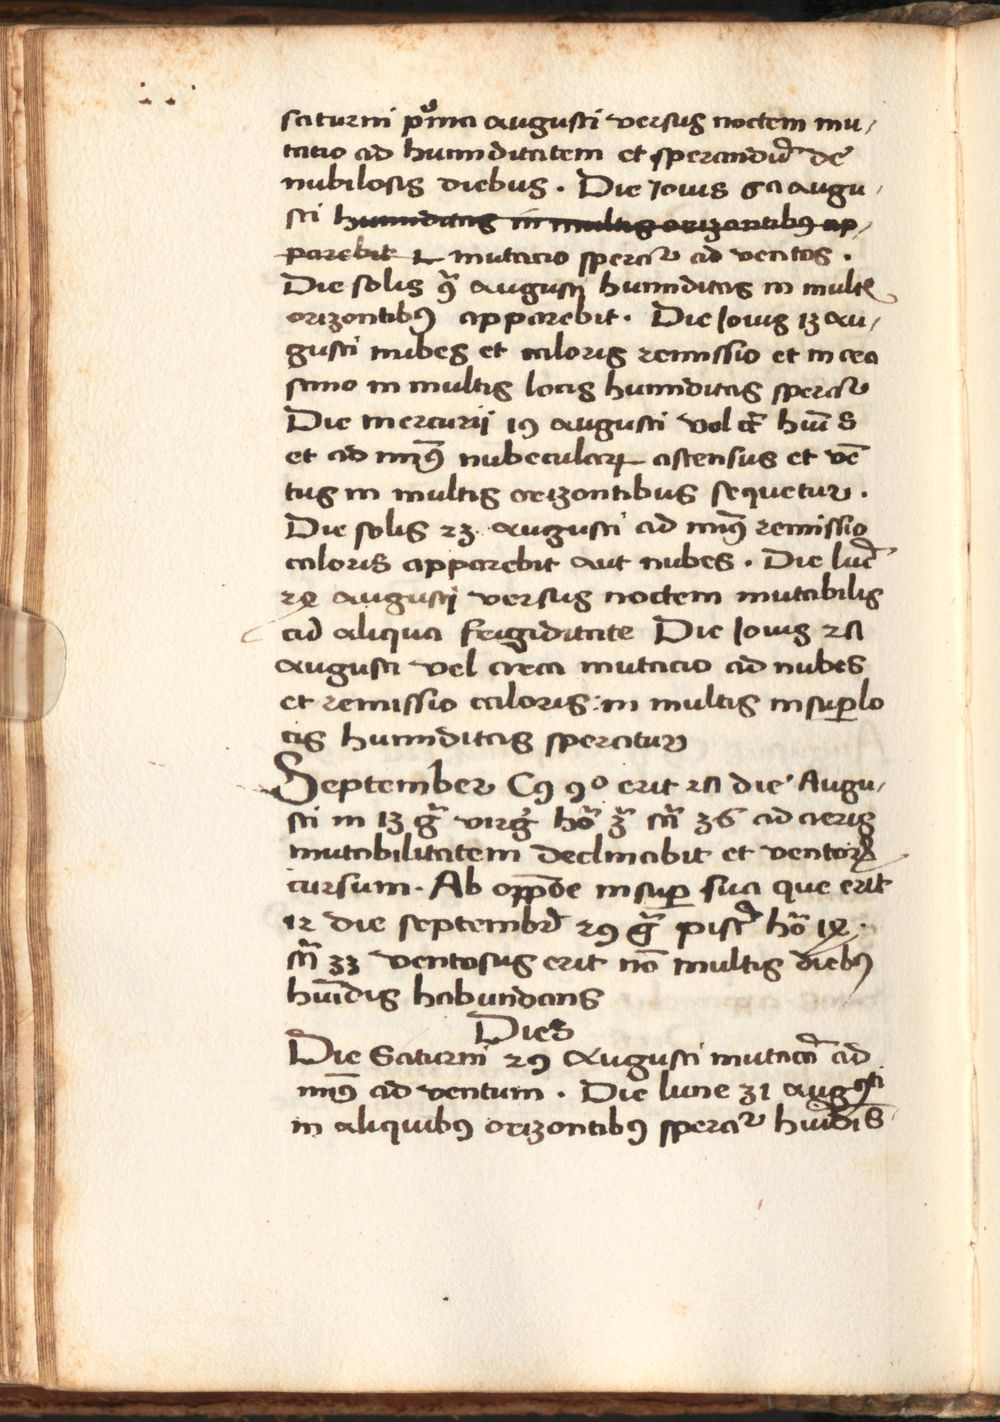 saturni pͦma augusti versus noctem mu/
tatio ad humiditatem et sperandu᷑ de
nubilosis diebus. Die Iovis 6a augu/
sti humiditas in multis orizontibꝯ ap/
parebit L mutacio sperat᷑ ad ventos.
Die solis 9a augusti humiditas in mult
orizontibꝯ apparebit. Die Iovis 13 au/
gusti nubes et caloris remissio et in cea
simo in multis locis humiditas sperat᷑
Die mercurij 19 augusti vel cc̄ hūi s
et ad minꝯ nubeculaꝝ astensus et vē
tus in multis orizontibus sequetur.
Die solis 23 augusti ad minꝯ remissio
caloris apparebit aut nubes. Die lūe
24 augusti versus noctem mutabilis
cū aliqua frigiditate Die Iovis 27
augusti vel circa mutacio ad nubes
et remissio caloris: in multis insuper lo
cis humiditas speratur
September C9 9o erit 27 die Augu/
sti in 13 gͣ virg̃ hoͣ 3ͣ m̄ 36 ad aeris
mutabilitatem declinabit et ventoꝝ
cursum. Ab opp̄oe insuꝑ sua que erit
12 die septembr̄ 29 gͣ pisc̄ hoͣ 14.
m̄ 33 ventosus erit nō multis diebꝯ
hūidis habundans
Dies
Die Saturni 29 augusti mutac̄o ad
minꝯ ad ventum. Die lune 31 augꝯti
in aliquibꝯ orizontibꝯ sperat᷑ hūidis